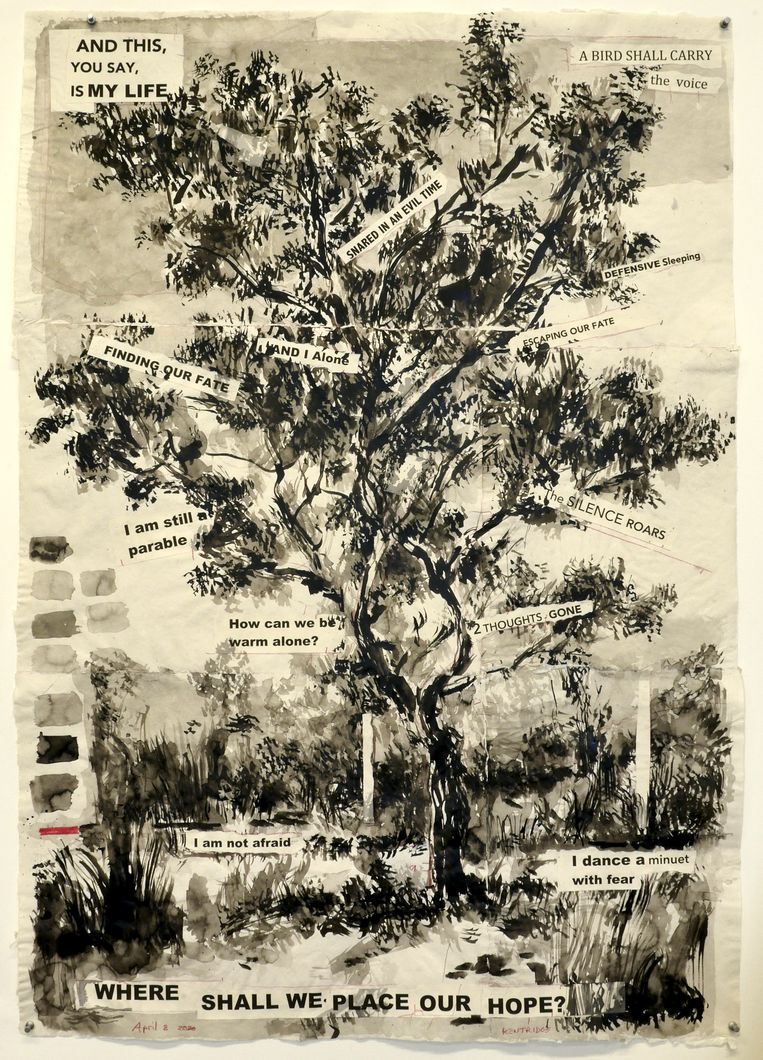 AND THIS,
YOU SAY,
IS MY LIFE
A BIRD SHALL CARRY
the voice
SNARED IN AN EVIL TIME
DEFENSIVE Sleeping
ESCAPING OUR FATE
AND I Alone
FINDING OUR FATE
I am still a
parable
The SILENCE ROARS
How can we be
warm alone?
2 THOUGHTS GONE
I am not afraid
I dance a minuet
with fear
WHERE SHALL WE PLACE OUR HOPE?
April 8 2020
KENTRIDGE